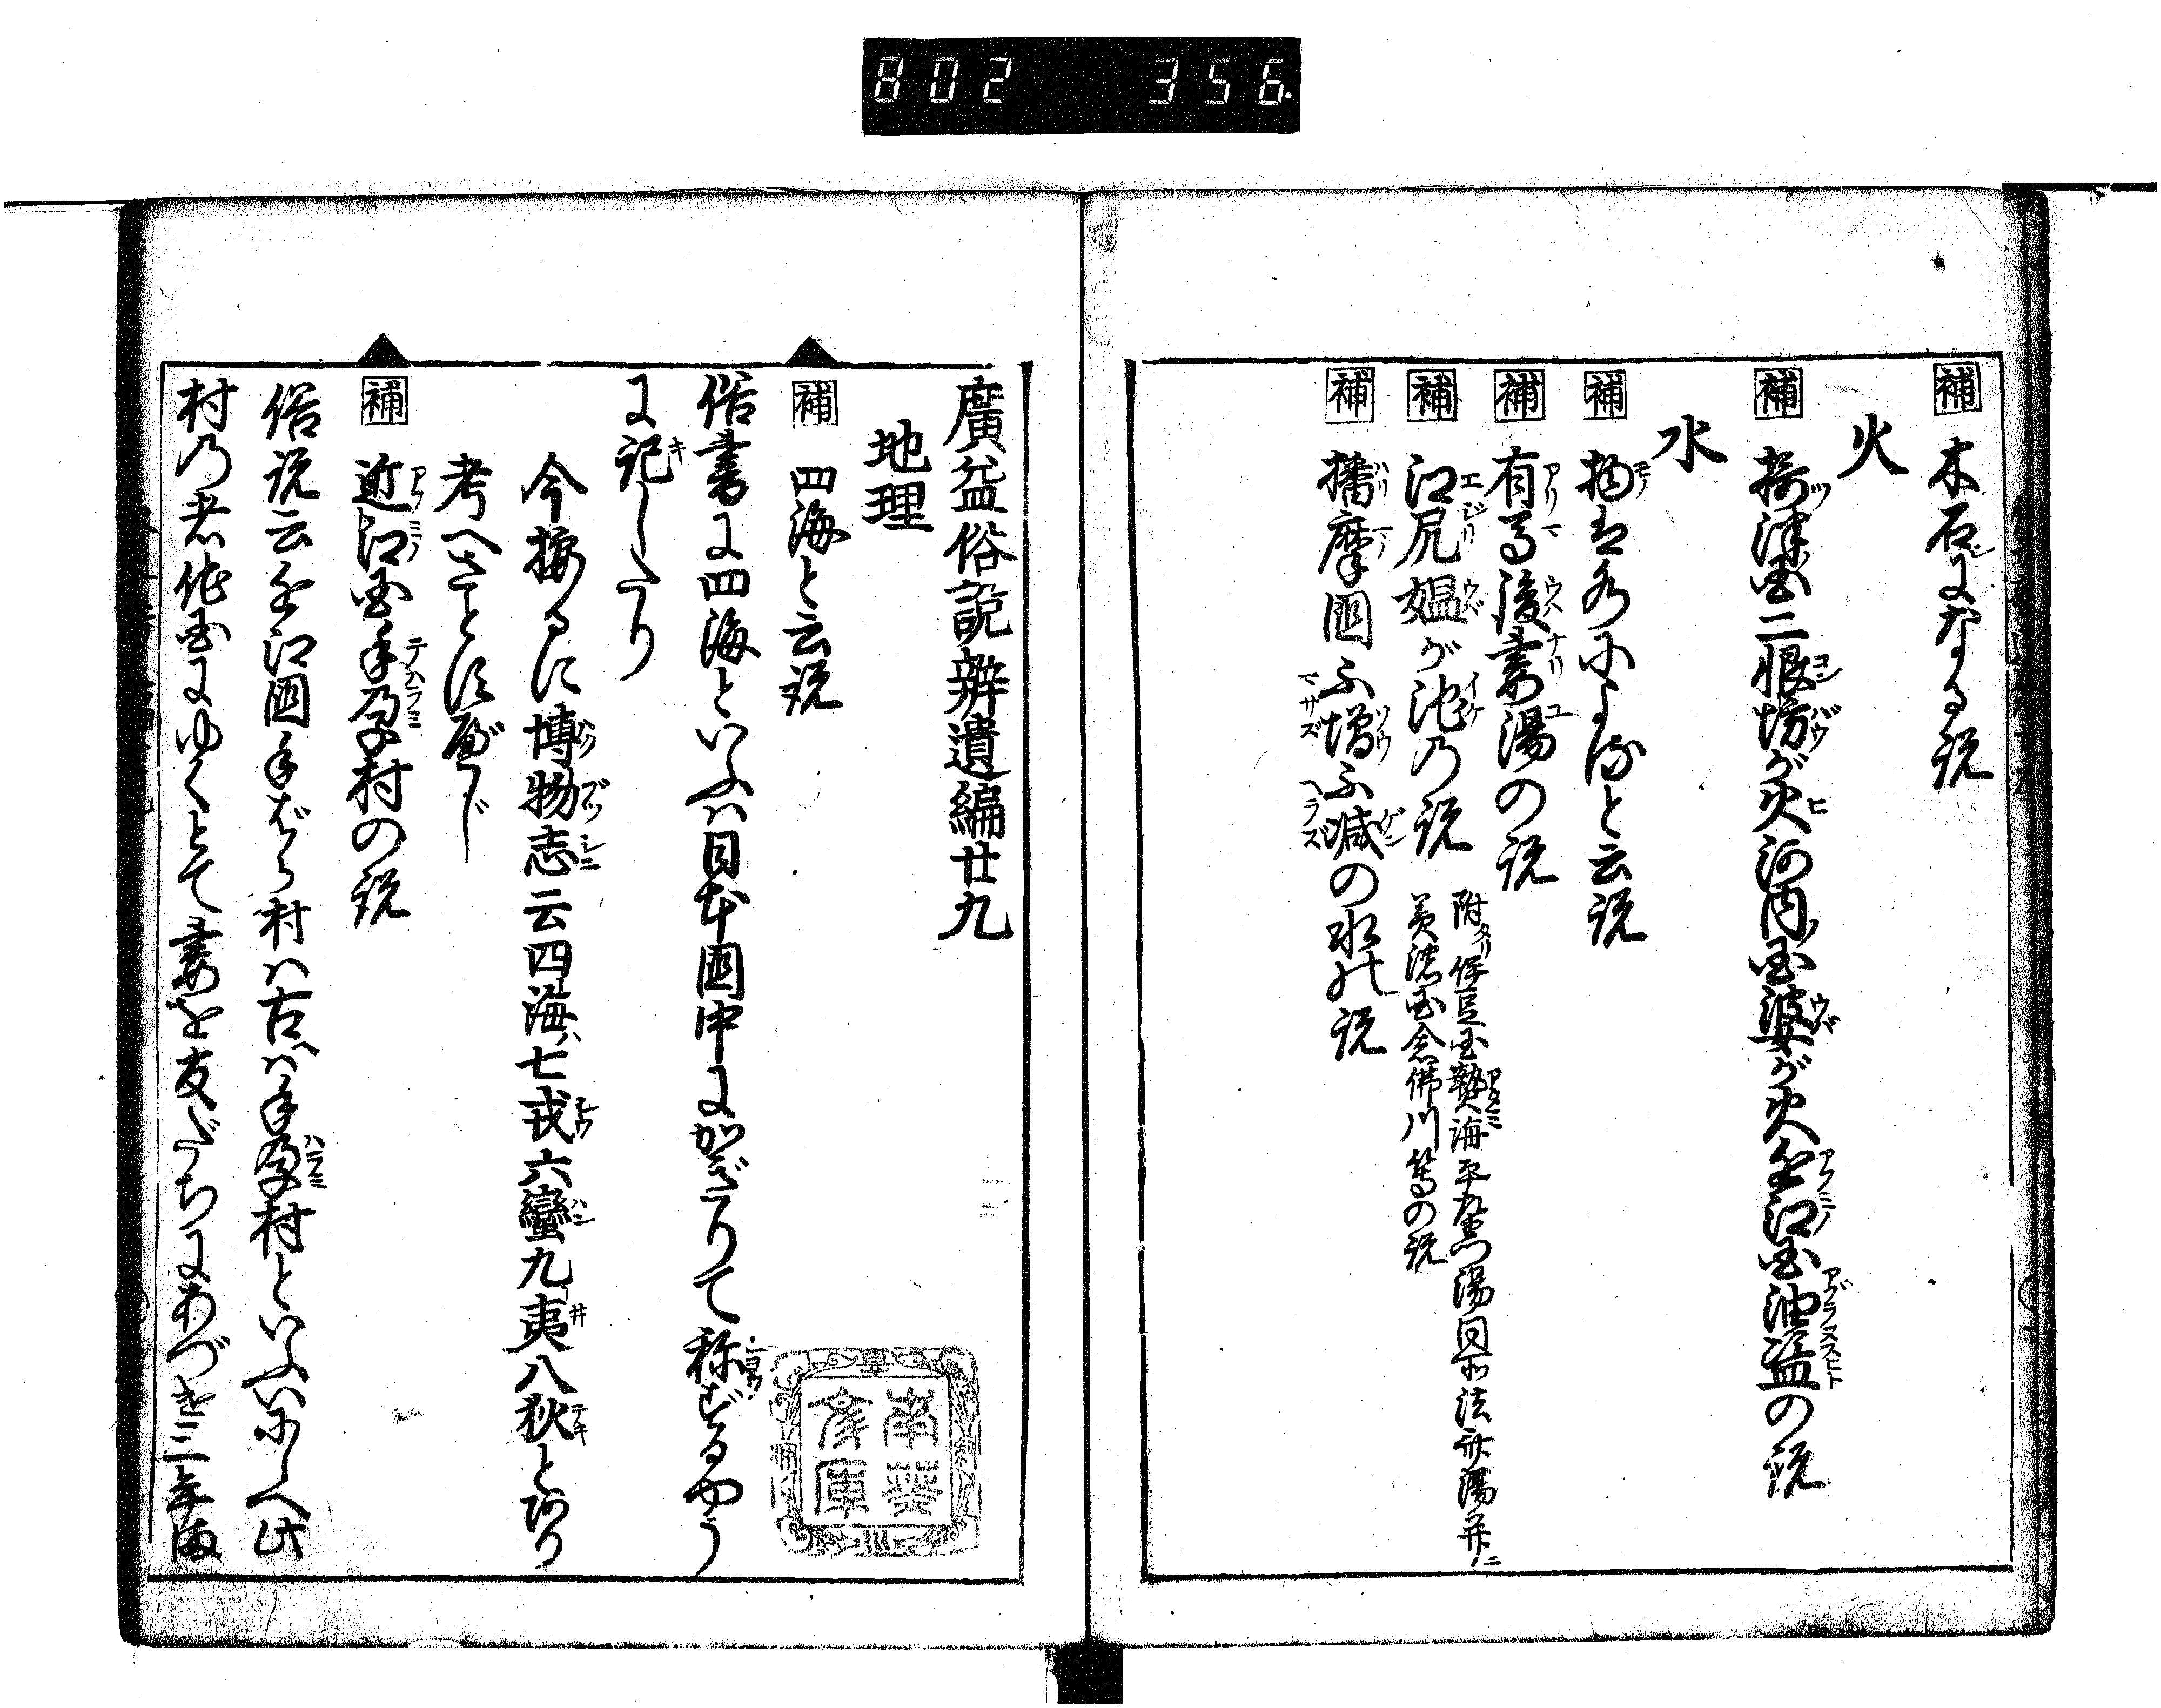 802 356.
補 木石になる説
火
補 摂津国二恨坊が火河内国婆が火近江国油盗の説
水
補 物は水によると云説
補 有馬後妻湯の説
補 江尻媼が池の説 附タリ伊豆国熱海平左衛門湯同所法斎湯并ニ
美濃国念佛川等の説
補 播摩國不増不減の水の説
廣益俗說辨遺編廿九
地理
補 四海と云説
俗書に四海といふハ日本國中にかぎりて称ずるやう
に記したり
今按るに博物志云四海ハ七戎六蠻九夷八狄とあり
考へさとす
補 近江国手孕村の説
俗説云近江國手ばら村ハ古ハ手孕村といふいにしへ此
村の者他国にゆくとて妻を友だちにあづけ三年
南葵文庫